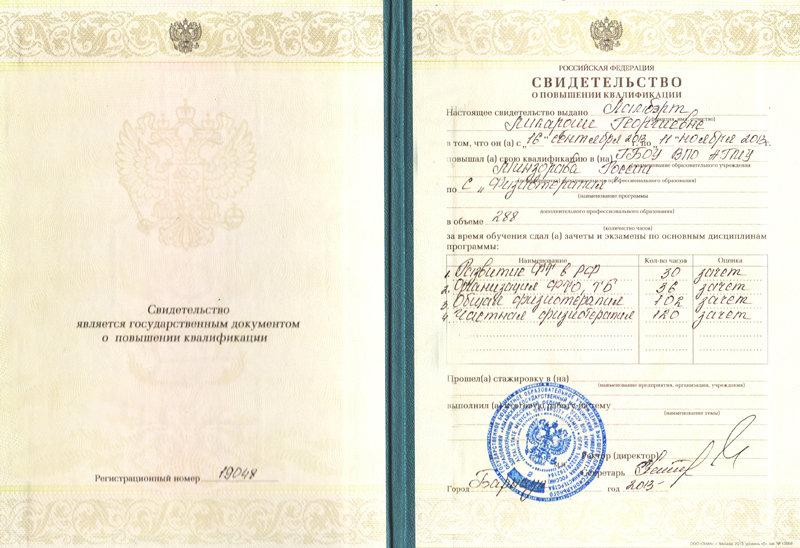 Свидетельство
является государственным документом
о повышении квалификации
Регистрационный номер 19048
РОССИЙСКАЯ ФЕДЕРАЦИЯ
СВИДЕТЕЛЬСТВО
О ПОВЫШЕНИИ КВАЛИФИКАЦИИ
Настоящее свидетельство выдано Ламбэрт
Георгиевне
в том, что он (а) с „16" сентября 2013 г. по 11 ноября 2013г.
повышал (а) свою квалификацию в (на) ГБОУ ВПО АГМУ
(наименование образовательного учреждения
Минздрава России
дополнительного профессионального образования)
по С „Физиотерапия"
(наименование программы
дополнительного профессионального образования)
в объеме 288
(количество часов)
за время обучения сдал (а) зачеты и экзамены по основным дисциплинам
программы:
Наименование Кол-во часов Оценка
1. Развитие ФТ в РФ 30 зачет
2. Организация ФТО, ТБ 36 зачет
3. Общая физиотерапия 102 зачет
4. Частная физиотерапия 120 зачет
Прошел(а) стажировку в (на)
(наименование предприятия, организации, учреждения)
выполнил (а) итоговую работу на тему
(наименование темы)
Ректор (директор)
Секретарь
Город Барнаул год 2013